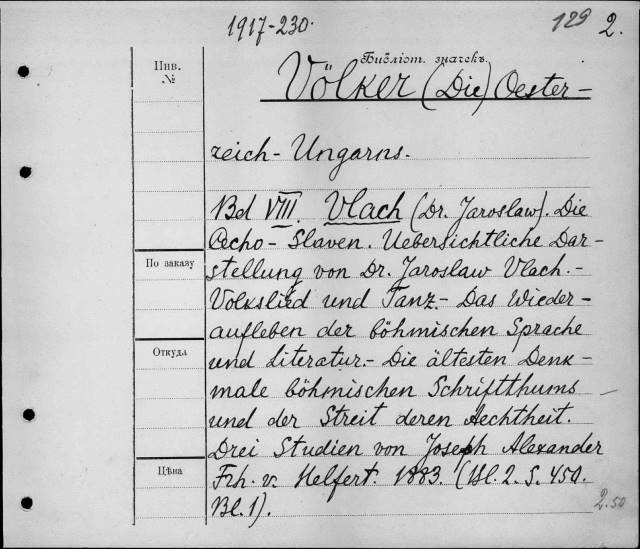 1917-230.
129 2.
Инв.
№
Библіот. значекъ.
Völker (Die) Oester-
reich-Ungarns.
Bd VIII. Vlach (Dr. Jaroslaw). Die
Čecho-Slaven. Uebersichtliche Dar-
По заказу
stellung von Dr. Jaroslaw Vlach.-
Volkslied und Tanz.- Das Wieder-
aufleben der böhmischen Sprache
Откуда
und Literatur.- Die ältesten Denk-
male böhmischen Schriftthums
und der Streit deren Aechtheit.
Drei Studien von Joseph Alexander
Цѣна
Frh. v. Helfert. 1883. (Bl. 2. S. 450.
Bl. 1).
2.50